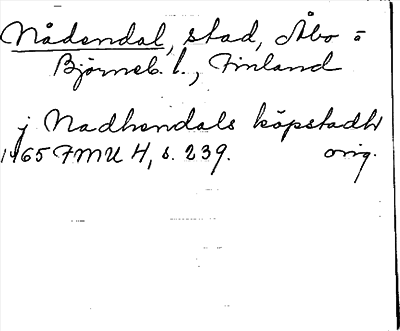 Nådendal, stad, Åbo =
Björneb. l., Finland
j Nadhendals köpstadh
1465 FMU 4, s. 239. orig.